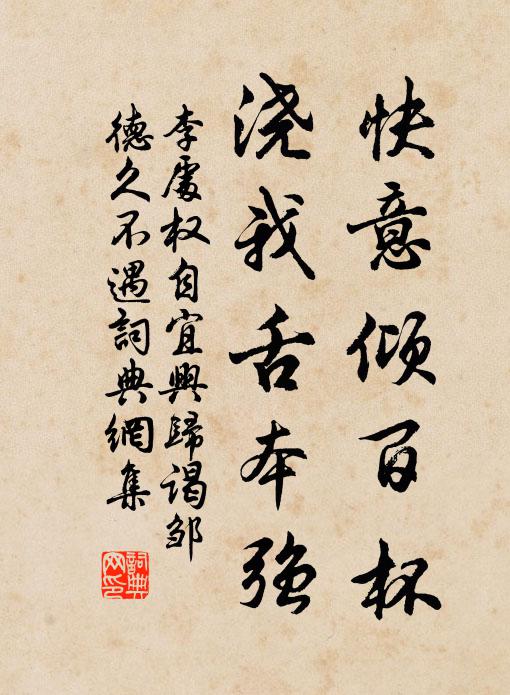 快意倾百杯
浇我舌本强
李處权自宜興歸谒邹
德久不遇詞典網集
詞典网印